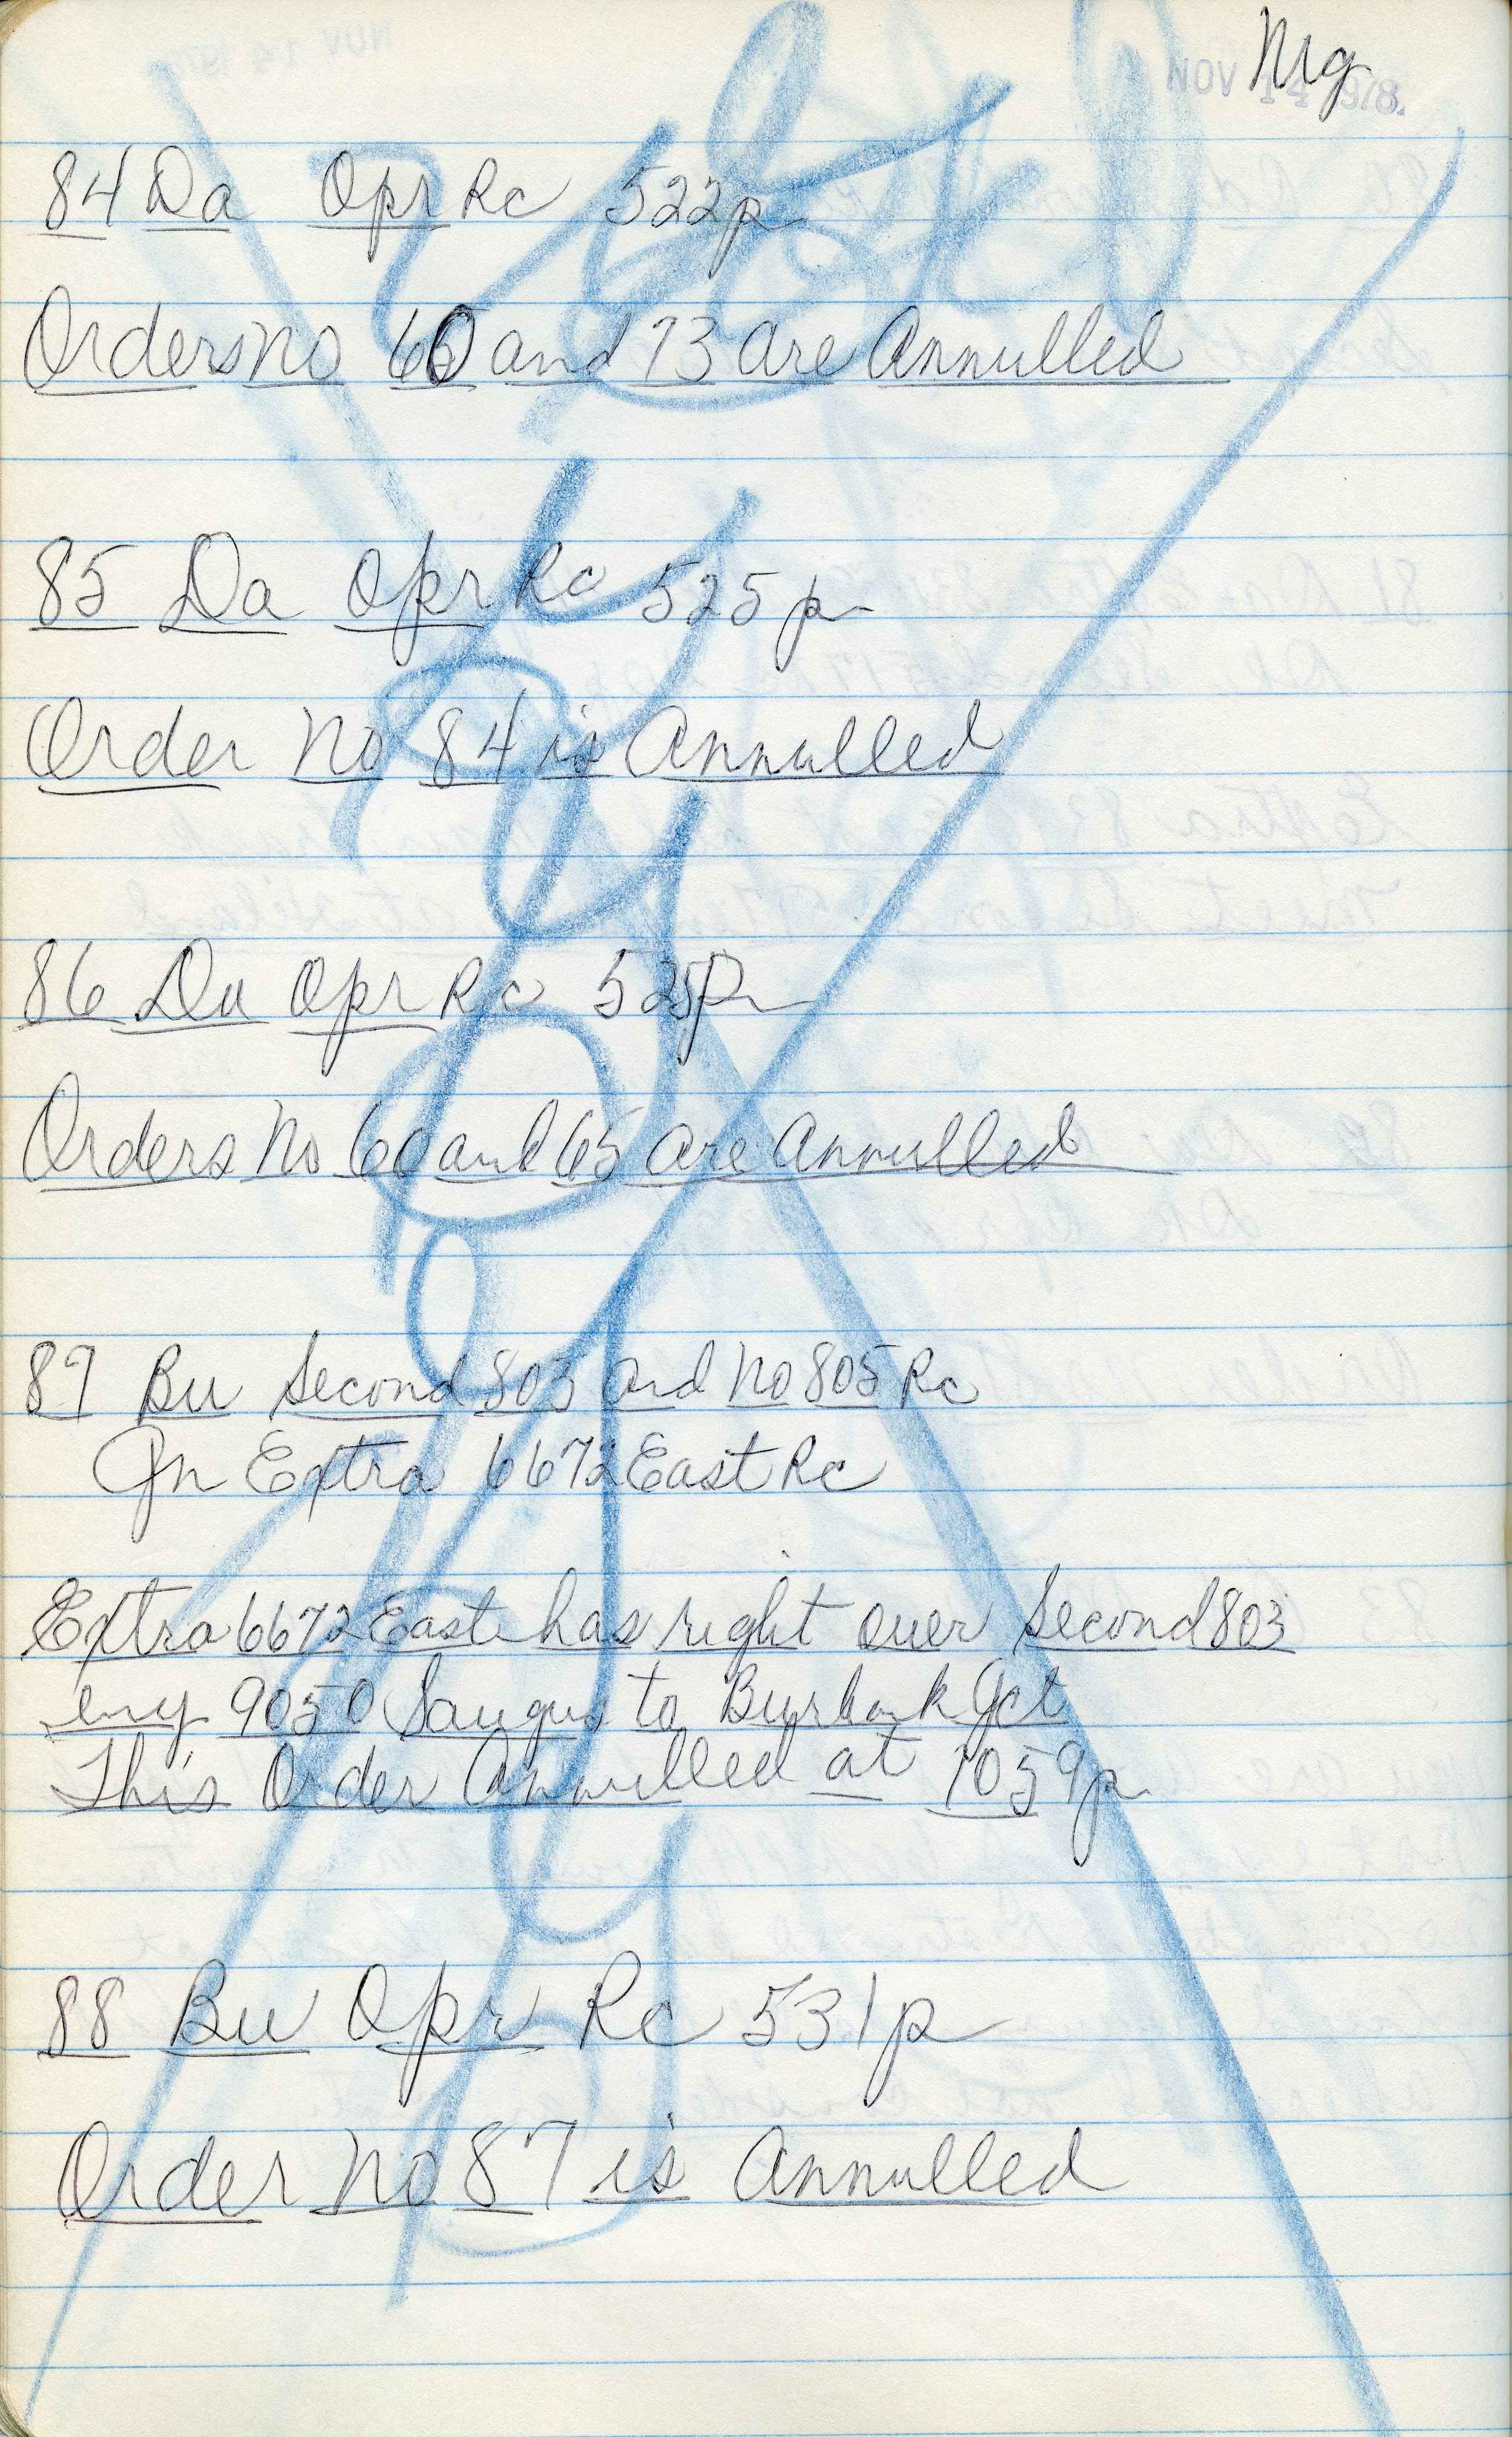 Mg
NOV 14 1978
84 Da Opr Rc 522p
Orders no 60 and 73 are Annulled
85 Da Opr Rc 525p
Order No 84 is Annulled
86 Da Opr Rc 525p
Orders No 60 and 65 are Annulled
87 Bu Second 803 and No 805 Rc
Gn Extra 6672 East Rc
Extra 6672 East has right over Second 803
eng 9050 Saugus to Burbank Jct
This Order Annulled at 1059p
88 Bu Opr Rc 531p
Order No 87 is Annulled